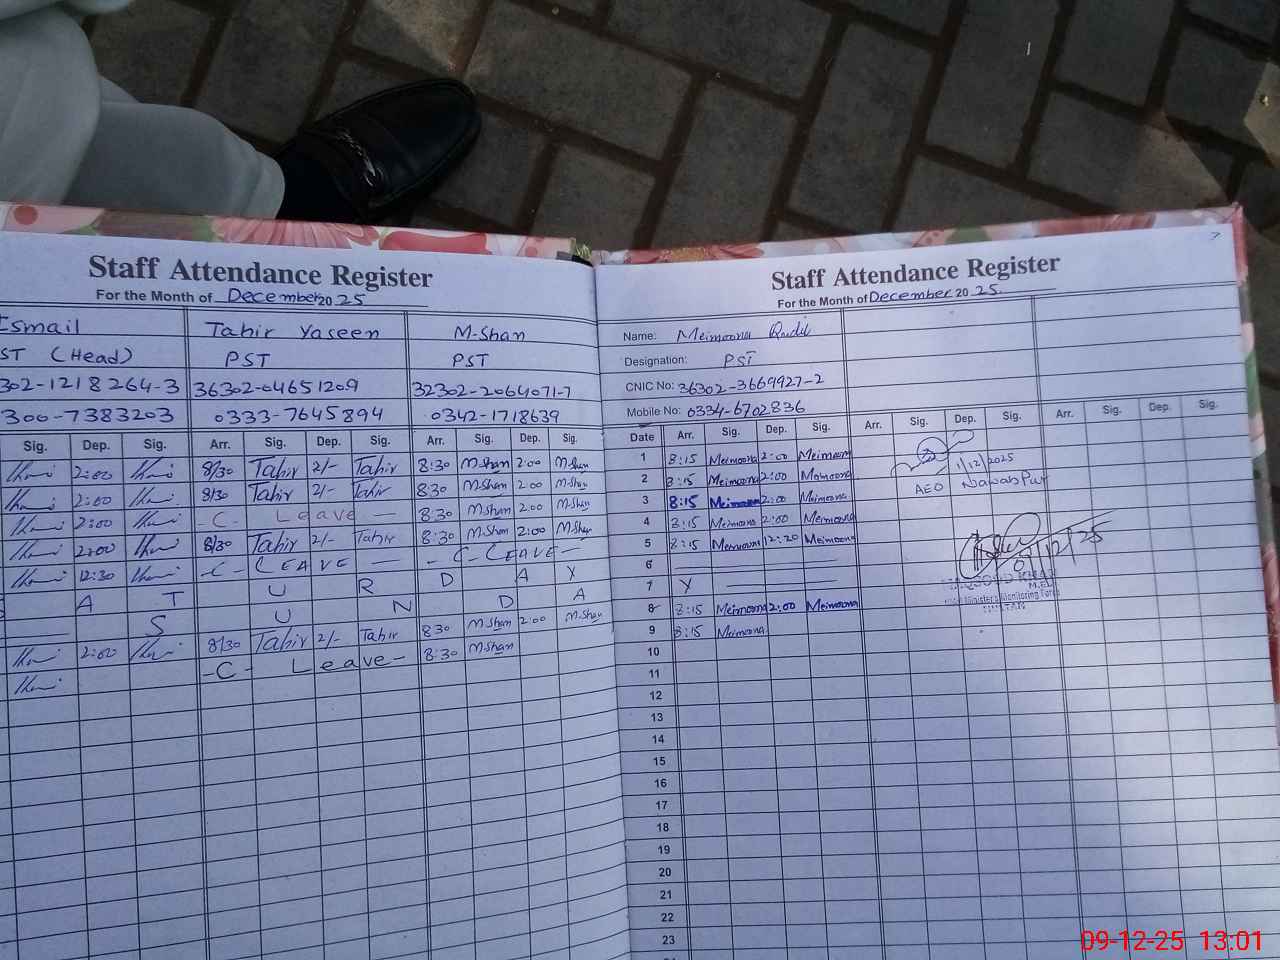 Staff Attendance Register
For the Month of December 2025
Ismail Tahir Yaseen M-Shan
ST (Head) PST PST
302-1218264-3 36302-04651209 32302-2064071-7
300-7383203 0333-7645894 0342-1718639
Sig. Dep. Sig. Arr. Sig. Dep. Sig. Arr. Sig. Dep. Sig.
2:00 8/30 Tahir 2/- Tahir 8:30 M-Shan 2:00 M-Shan
2:00 8/30 Tahir 2/- Tahir 8:30 M-Shan 2:00 M-Shan
2:00 -C- Leave - 8:30 M-Shan 2:00 M-Shan
2:00 8/30 Tahir 2/- Tahir 8:30 M-Shan 2:00 M-Shan
12:30 -C- LEAVE - -C-LEAVE-
S A T U R D A Y
S U N D A
2:00 8/30 Tahir 2/- Tahir 8:30 M-Shan 2:00 M-Shan
-C- Leave- 8:30 M-Shan
Staff Attendance Register
For the Month of December 2025.
Name: Meimoona
Designation: PST
CNIC No: 36302-3669927-2
Mobile No: 0334-6702836
Date Arr. Sig. Dep. Sig. Arr. Sig. Dep. Sig. Arr. Sig. Dep. Sig.
1 8:15 Meimoona 2:00 Meimoona
2 8:15 Meimoona 2:00 Meimoona
3 8:15 Meimoona 2:00 Meimoona
4 8:15 Meimoona 2:00 Meimoona
5 8:15 Meimoona 12:20 Meimoona
6
7 Y
8 8:15 Meimoona 2:00 Meimoona
9 8:15 Meimoona
10
11
12
13
14
15
16
17
18
19
20
21
22
23
1/12/2025
AEO Nawab Pur
09/12/25
KHAN
M.ED
Minister's Monitoring Force
MULTAN
09-12-25 13:01